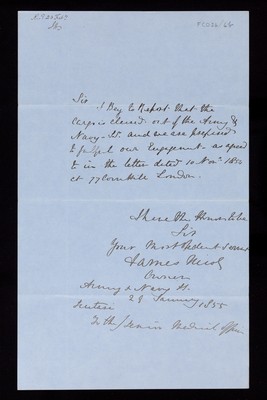 Sir I Beg to Report that the
cargo is cleared out of the Army &
Navy St. and we are prepared
to fulfil our Engagement as agreed
to in the letter dated 10 Novr
at 77 Cornhill London.
I have the Honor to be
Sir
Your Most Obedient Servant
James Nicol
Owner
Army & Navy St.
29 January 1855
To the Senior Medical Officer